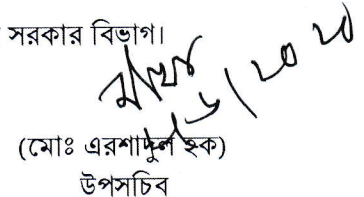 সরকার বিভাগ।
(মোঃ এরশাদুল হক)
উপসচিব